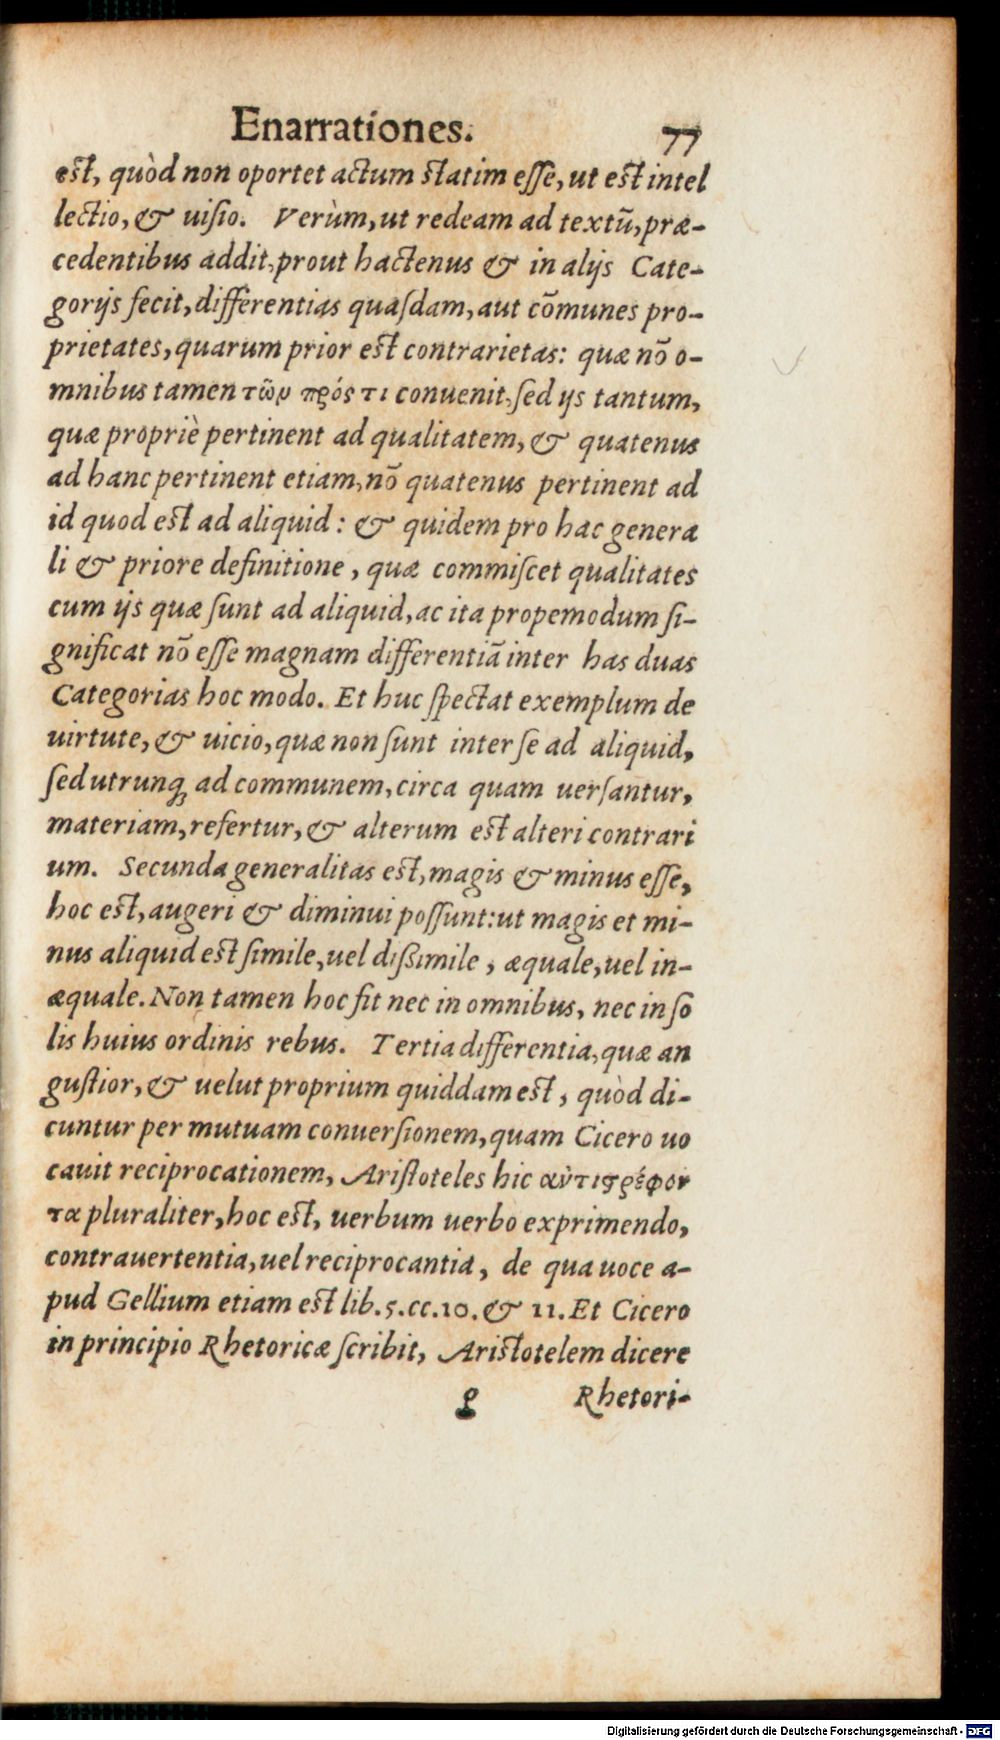 Enarrationes. 77
est, quòd non oportet actum statim esse, ut est intel
lectio, & uisio. Verùm, ut redeam ad textũ, præ-
cedentibus addit, prout hactenus & in alijs Cate-
gorijs fecit, differentias quasdam, aut cõmunes pro-
prietates, quarum prior est contrarietas: quæ nõ o-
mnibus tamen τῶν πρός τι conuenit, sed ijs tantum,
quæ propriè pertinent ad qualitatem, & quatenus
ad hanc pertinent etiam, nõ quatenus pertinent ad
id quod est ad aliquid: & quidem pro hac genera
li & priore definitione, quæ commiscet qualitates
cum ijs quæ sunt ad aliquid, ac ita propemodum si-
gnificat nõ esse magnam differentiã inter has duas
Categorias hoc modo. Et huc spectat exemplum de
uirtute, & uicio, quæ non sunt inter se ad aliquid,
sed utrunq; ad communem, circa quam uersantur,
materiam, refertur, & alterum est alteri contrari
um. Secunda generalitas est, magis & minus esse,
hoc est, augeri & diminui possunt: ut magis et mi-
nus aliquid est simile, uel dissimile, æquale, uel in-
æquale. Non tamen hoc fit nec in omnibus, nec in so
lis huius ordinis rebus. Tertia differentia, quæ an
gustior, & uelut proprium quiddam est, quòd di-
cuntur per mutuam conuersionem, quam Cicero uo
cauit reciprocationem, Aristoteles hic αὐτιστρέφον
τα pluraliter, hoc est, uerbum uerbo exprimendo,
contrauertentia, uel reciprocantia, de qua uoce a-
pud Gellium etiam est lib. 5. cc. 10. & 11. Et Cicero
in principio Rhetoricæ scribit, Aristotelem dicere
g Rhetori-
Digitalisierung gefördert durch die Deutsche Forschungsgemeinschaft - DFG